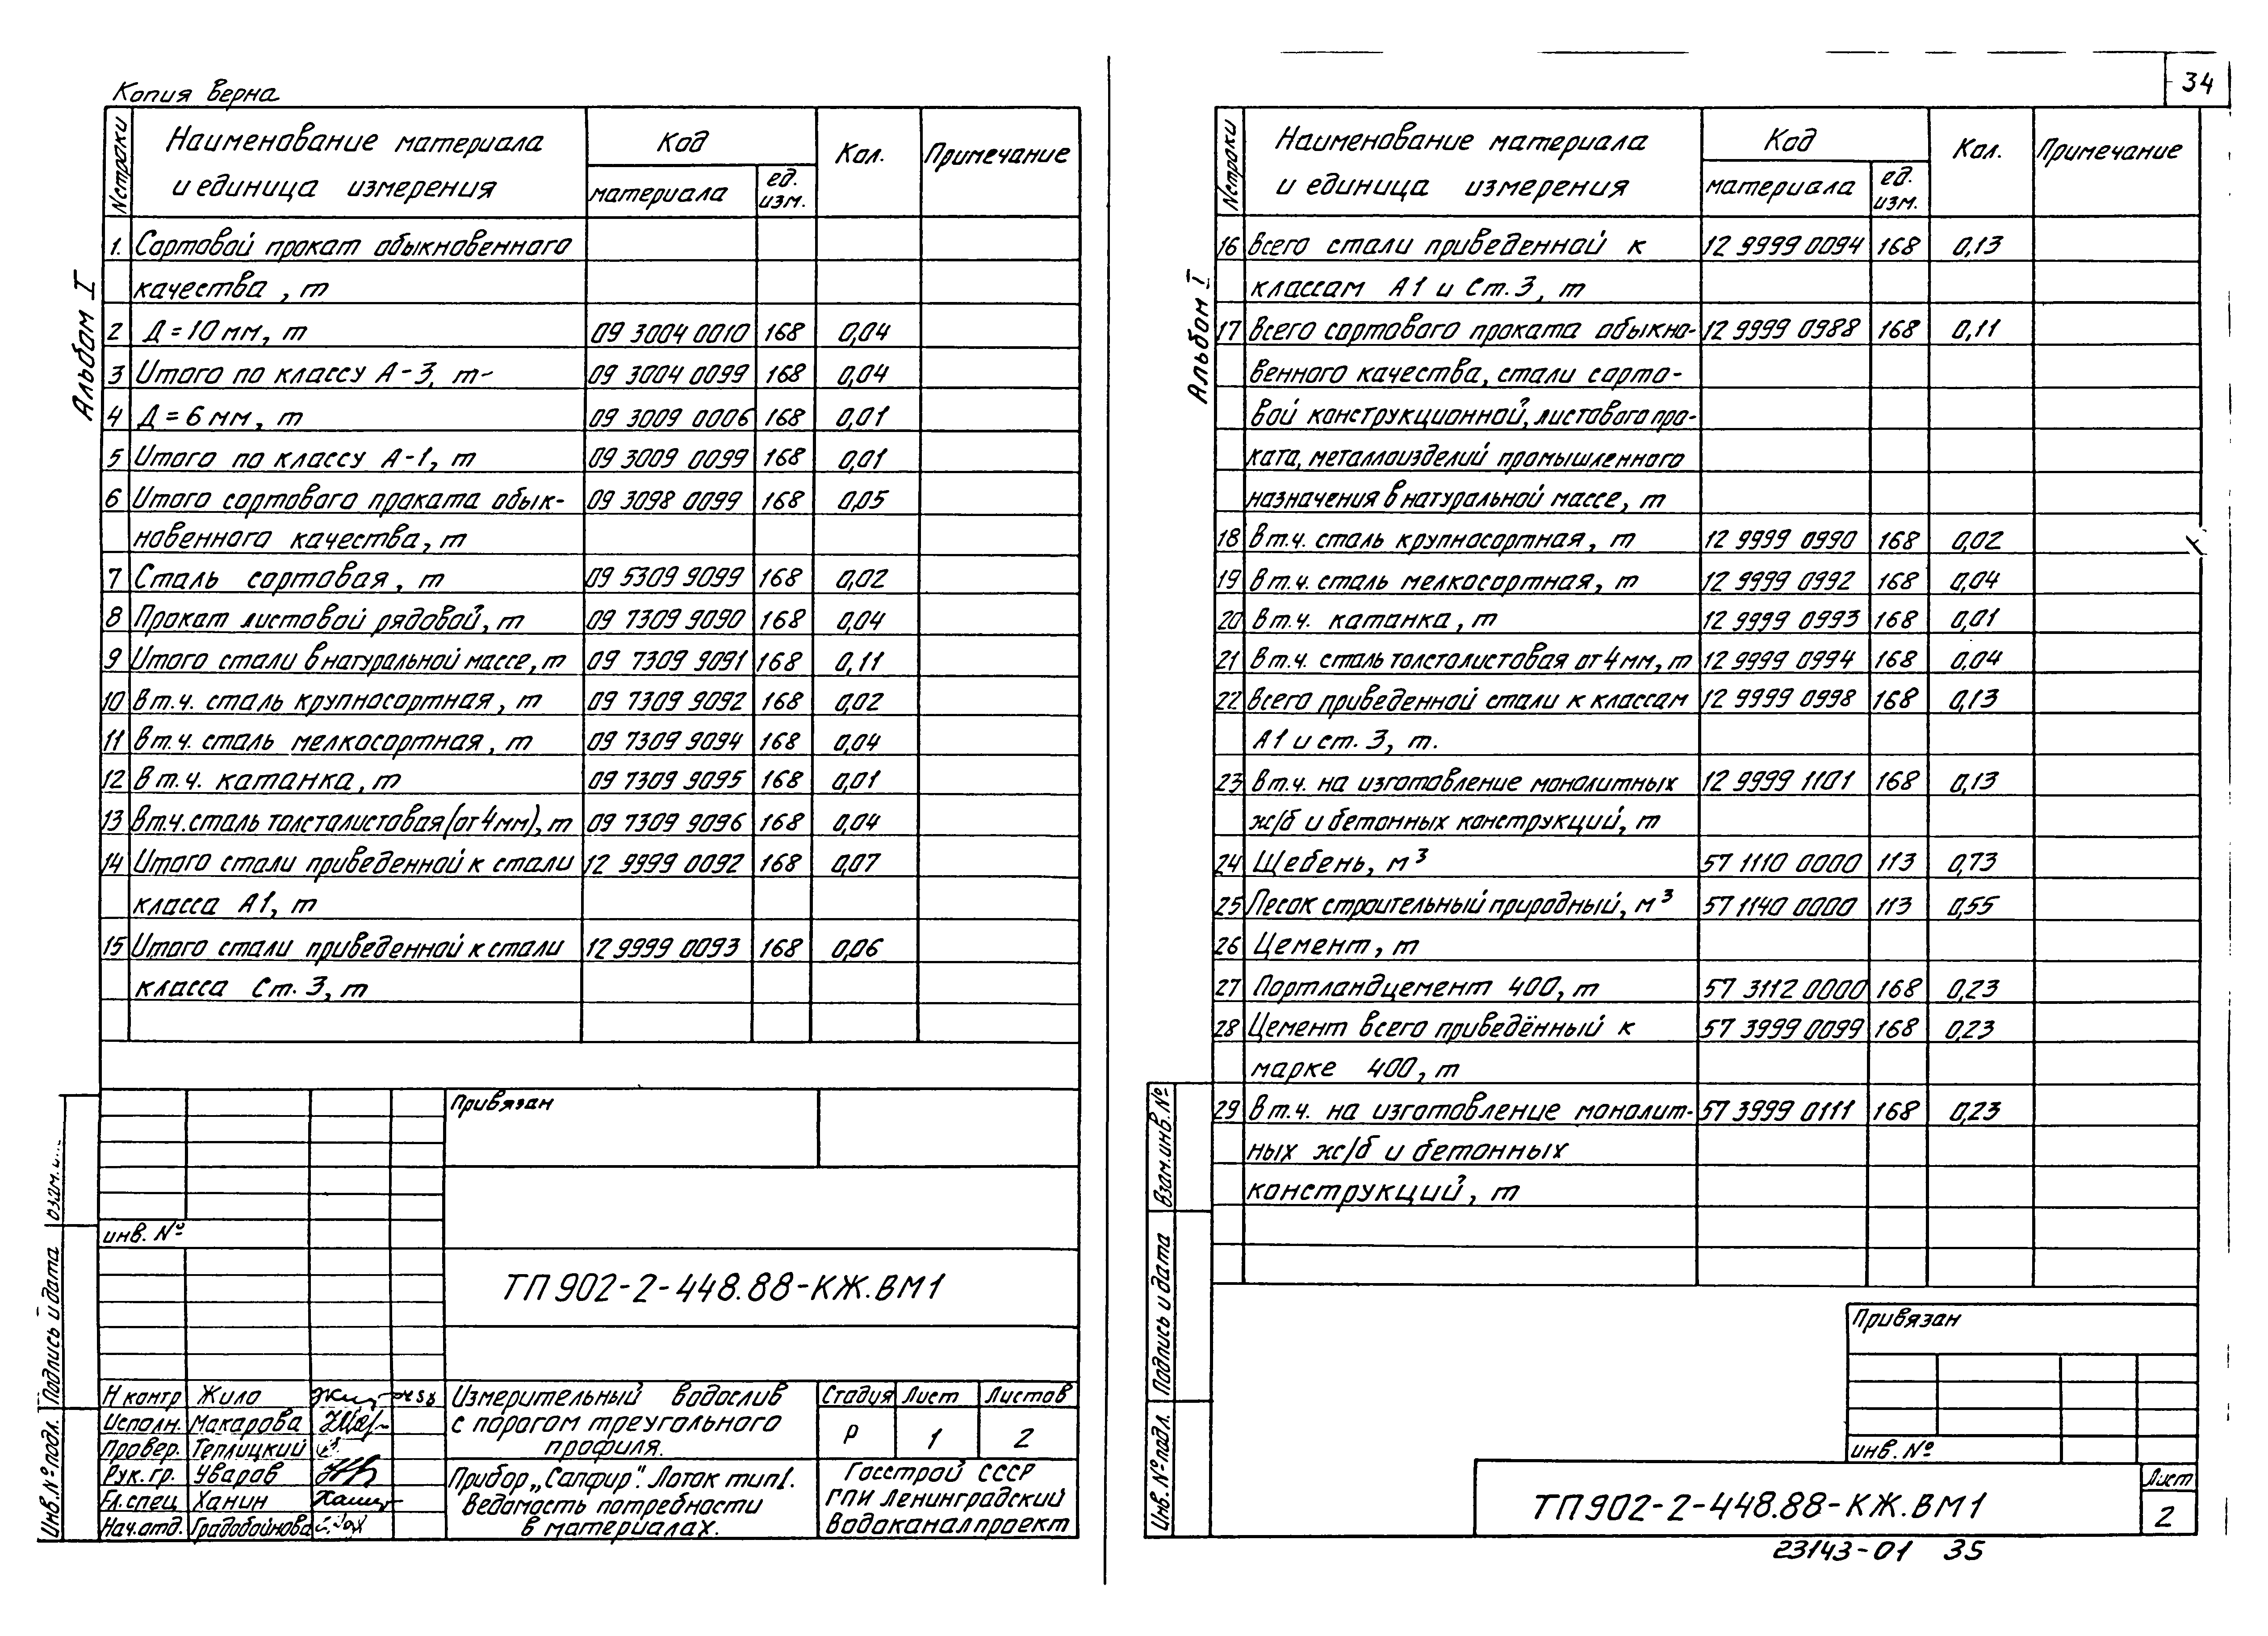 Копия верна
34
Альбом I
№ строки Наименование материала и единица измерения Код материала ед. изм. Кол. Примечание
1. Сортовой прокат обыкновенного
качества, т
2 Д = 10 мм, т 09 3004 0010 168 0,04
3 Итого по классу А-3, т 09 3004 0099 168 0,04
4 Д = 6 мм, т 09 3009 0006 168 0,01
5 Итого по классу А-1, т 09 3009 0099 168 0,01
6 Итого сортового проката обык- 09 3098 0099 168 0,05
новенного качества, т
7 Сталь сортовая, т 09 5309 9099 168 0,02
8 Прокат листовой рядовой, т 09 7309 9090 168 0,04
9 Итого стали в натуральной массе, т 09 7309 9091 168 0,11
10 в т.ч. сталь крупносортная, т 09 7309 9092 168 0,02
11 в т.ч. сталь мелкосортная, т 09 7309 9094 168 0,04
12 в т.ч. катанка, т 09 7309 9095 168 0,01
13 в т.ч. сталь толстолистовая (от 4 мм), т 09 7309 9096 168 0,04
14 Итого стали приведенной к стали 12 9999 0092 168 0,07
класса А1, т
15 Итого стали приведенной к стали 12 9999 0093 168 0,06
класса Ст. 3, т
Привязан
инв. №
ТП 902-2-448.88-КЖ.ВМ1
Н контр Жило
Исполн. Макарова
Провер. Теплицкий
Рук. гр. Уваров
Гл. спец Ханин
Нач. отд. Градобойнова
Измерительный водослив
с порогом треугольного
профиля.
Стадия Лист Листов
Р 1 2
Прибор „Сапфир". Лоток тип I.
Ведомость потребности
в материалах.
Госстрой СССР
ГПИ Ленинградский
Водоканалпроект
Инв. № подл. Подпись и дата
Альбом I
№ строки Наименование материала и единица измерения Код материала ед. изм. Кол. Примечание
16 всего стали приведенной к 12 9999 0094 168 0,13
классам А1 и Ст. 3, т
17 всего сортового проката обыкно- 12 9999 0988 168 0,11
венного качества, стали сорто-
вой конструкционной, листового про-
ката, металлоизделий промышленного
назначения в натуральной массе, т
18 в т.ч. сталь крупносортная, т 12 9999 0990 168 0,02
19 в т.ч. сталь мелкосортная, т 12 9999 0992 168 0,04
20 в т.ч. катанка, т 12 9999 0993 168 0,01
21 в т.ч. сталь толстолистовая от 4 мм, т 12 9999 0994 168 0,04
22 всего приведенной стали к классам 12 9999 0998 168 0,13
А1 и ст. 3, т.
23 в т.ч. на изготовление монолитных 12 9999 1101 168 0,13
ж/б и бетонных конструкций, т
24 Щебень, м³ 57 1110 0000 113 0,73
25 Песок строительный природный, м³ 57 1140 0000 113 0,55
26 Цемент, т
27 Портландцемент 400, т 57 3112 0000 168 0,23
28 Цемент всего приведённый к 57 3999 0099 168 0,23
марке 400, т
29 в т.ч. на изготовление монолит- 57 3999 0111 168 0,23
ных ж/б и бетонных
конструкций, т
Привязан
инв. №
ТП 902-2-448.88-КЖ.ВМ1
Лист
2
Инв. № подл. Подпись и дата Взам. инв. №
23143-01 35